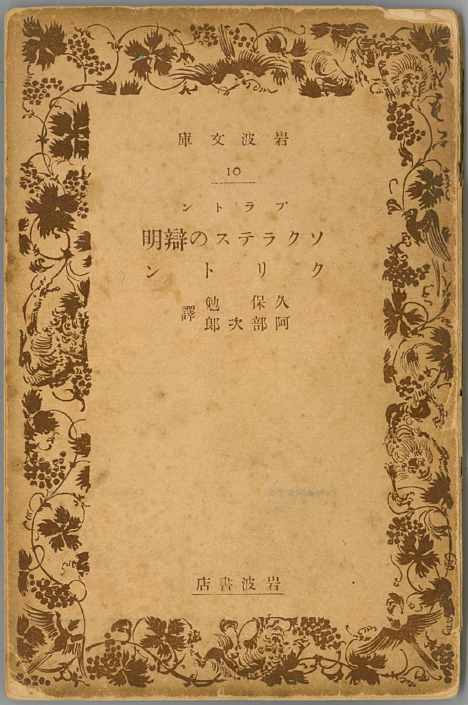 岩波文庫
10
プラトン
ソクラテスの辯明
クリトン
久保勉
阿部次郎
譯
岩波書店